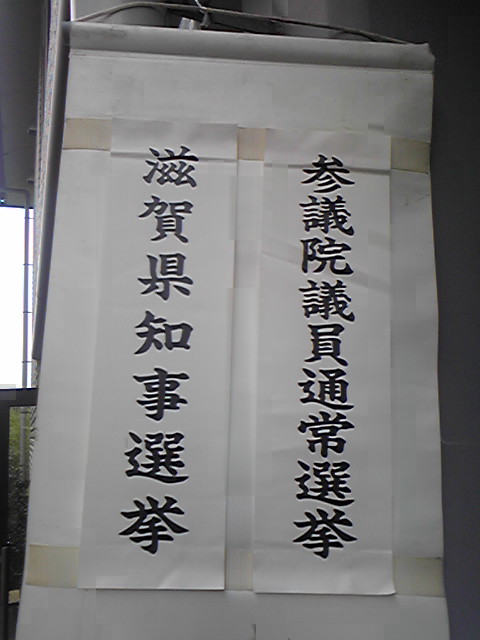 参議院議員通常選挙
滋賀県知事選挙